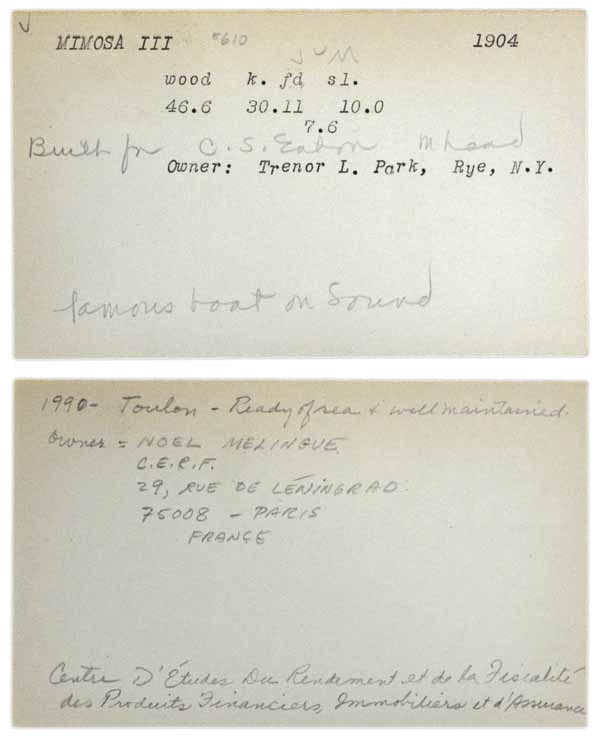 MIMOSA III #610 1904
wood k. fd. sl.
46.6 30.11 10.0
7.6
Built for C. S. Eaton Mhead
Owner: Trenor L. Park, Rye, N.Y.
famous boat on Sound
1990- Toulon - Ready of sea & well maintained.
Owner = NOEL MELINGUE
C.E.R.F.
29, RUE DE LÉNINGRAD
75008 - PARIS
FRANCE
Centre D'Études Du Rendement et de la Fiscalité
des Produits Financiers, Immobiliers et d'Assurance